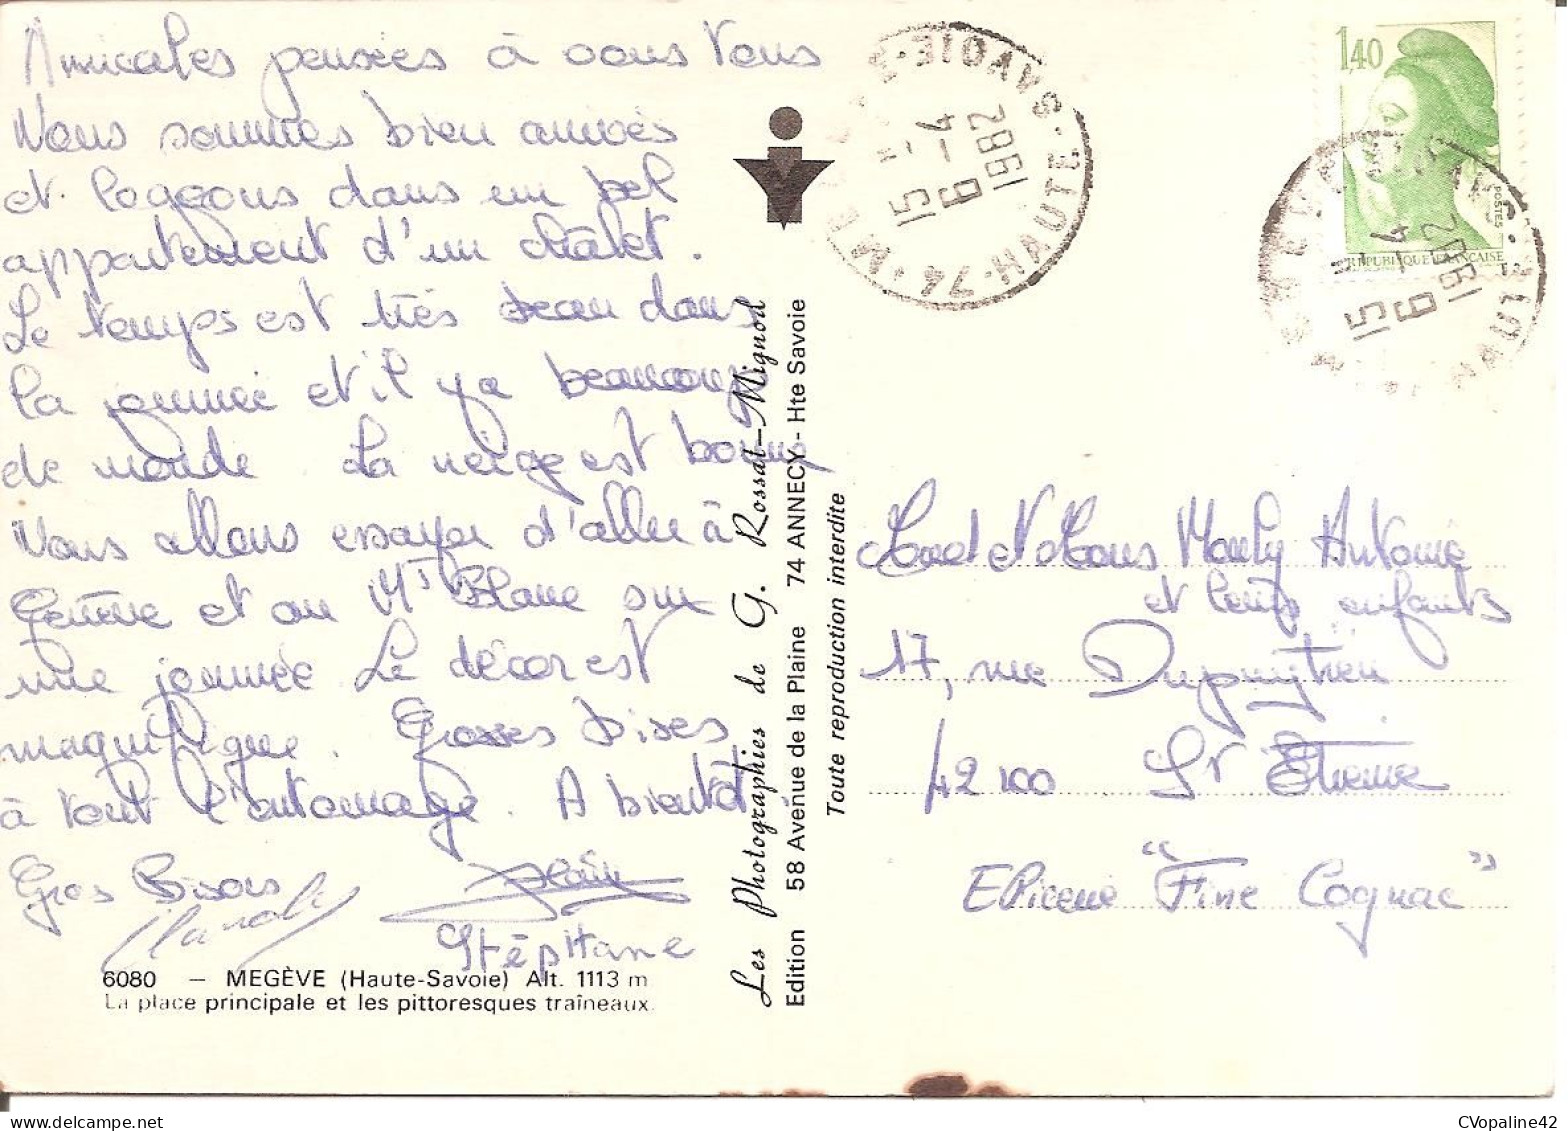 Amicales pensées à vous tous
Nous sommes bien arrivés
et logeons dans un bel
appartement d'un châlet.
Le temps est très beau dans
la journée et il y a beaucoup
de monde. La neige est bonne
Nous allons essayer d'aller à
Genève et au Mt Blanc sur
une journée. Le décor est
magnifique. Grosses bises
à tout l'entourage. A bientôt
Gros Bisous
Alain
Stéphane
6080 – MEGÈVE (Haute-Savoie) Alt. 1113 m
La place principale et les pittoresques traîneaux.
Les Photographies de G. Rossat-Mignod
Edition 58 Avenue de la Plaine 74 ANNECY - Hte Savoie
Toute reproduction interdite
74 - HAUTE-SAVOIE
15 H
9 - 4
1982
1,40
POSTES
REPUBLIQUE FRANÇAISE
15 H
9 - 4
1982
et Antoine
et leurs enfants
17, rue Dupuytren
42100 St Etienne
Epicerie "Fine Cognac"
CVopaline42